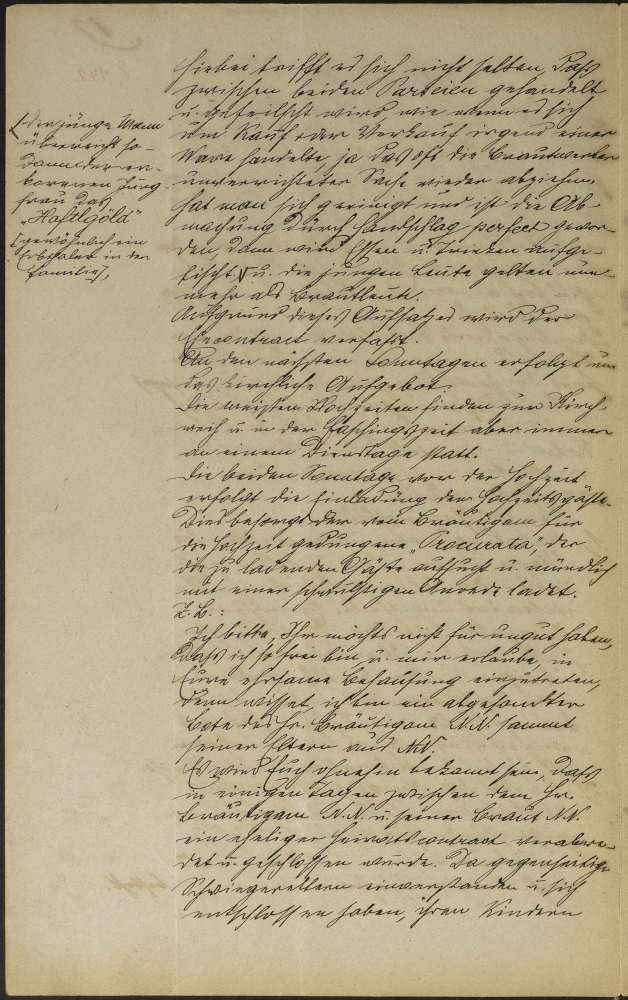 hiebei trifft es sich nicht selten, daß
zwischen beiden Parteien gehandelt
u. gefeilscht wird wie wenn es sich
um Kauf oder Verkauf irgend einer
Ware handelte, ja daß oft die Brautwerber
unverrichteter Sache wieder abziehen.
Hat man sich geeinigt und ist die Ab-
machung durch Handschlag perfect gewor-
den, dann wird Essen u. Trinken aufge-
tischt u. die jungen Leute gelten nun-
mehr als Brautleute.
Aufgrund dieses Aufsatzes wird der
Ehecontract verfaßt.
An den nächsten Sonntagen erfolgt nun
das kirchliche Aufgebot.
Die meisten Hochzeiten finden zur Kirch-
weih u. in der Faschingszeit aber immer
an einem Dienstage statt.
Die beiden Sonntage vor der Hochzeit
erfolgt die Einladung der Hochzeitsgäste.
Dies besorgt der vom Bräutigam für
die Hochzeit gedungene „Procurata", der
die zu ladenden Gäste aufsucht u. mündlich
mit einer schwulstigen Anrede ladet.
Z. B.:
Ich bitte, Ihr möchts nicht für ungut haben,
daß ich so frei bin u. mir erlaube, in
Eure ehrsame Behausung einzutreten,
denn wisset, ich bin ein abgesandter
Bote des Hr. Bräutigam N.N. sammt
seiner Eltern aus N.N.
Es wird Euch ohnehin bekannt sein, daß
in einigen Tagen zwischen dem Hr.
Bräutigam N.N. u. seiner Braut N.N.
ein eheliger Heiratscontract verabre-
det u. geschlossen wurde. Da gegenseitige
Schwiegereltern einverstanden u. sich
entschlossen haben, ihren Kindern
Der junge Mann
überreicht so-
dann der er-
korenen Jung-
frau das
„Haftlgöld"
[gewöhnlich ein
Erbthaler in der
Familie],